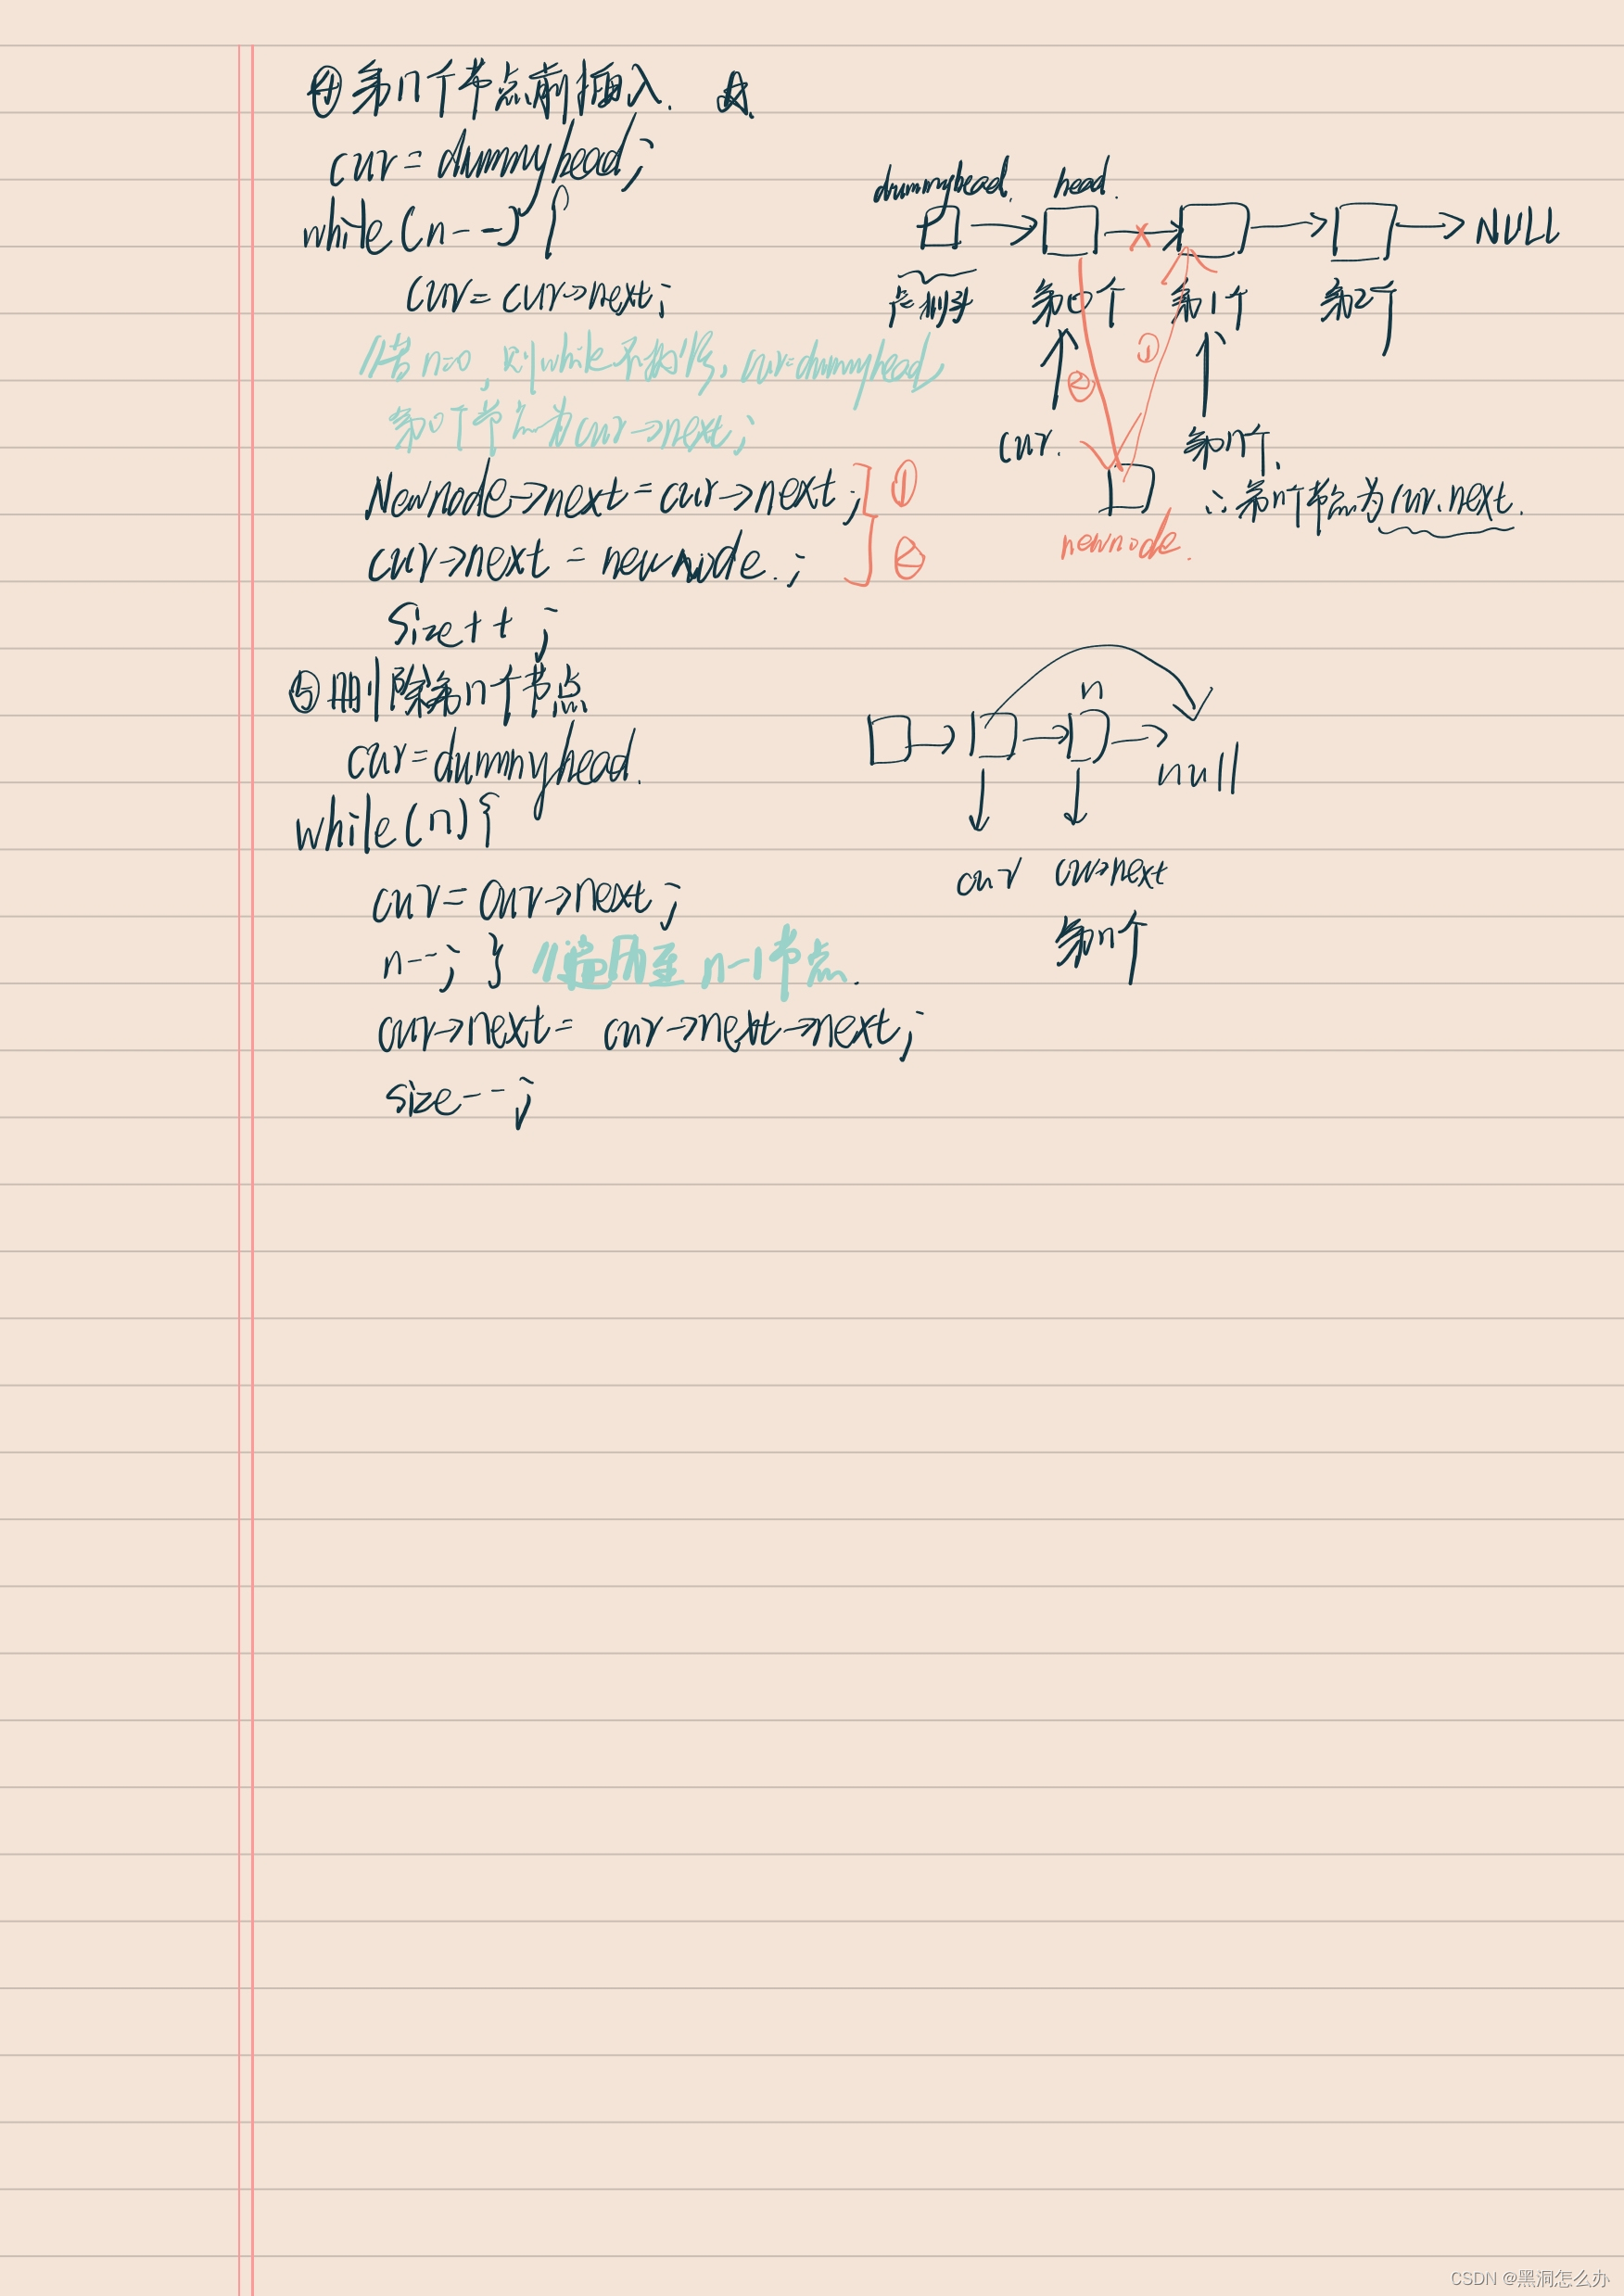 ④第n个节点前插入.
cur=dummyhead;
while(n--){
cur=cur->next;
//若n=0,则while不执行,cur=dummyhead,
第0个节点为cur->next;
Newnode->next=cur->next; ①
cur->next=newnode.; ②
Size++;
dummyhead. head.
NULL
虚拟头 第0个 第1个 第2个
② ①
cur. 第n个.
∴第n个节点为cur.next.
newnode.
⑤删除第n个节点
cur=dummyhead.
while(n){
cur=cur->next;
n--; } //遍历至n-1节点.
cur->next=cur->next->next;
size--;
n
null
cur cur->next
第n个
CSDN @黑洞怎么办